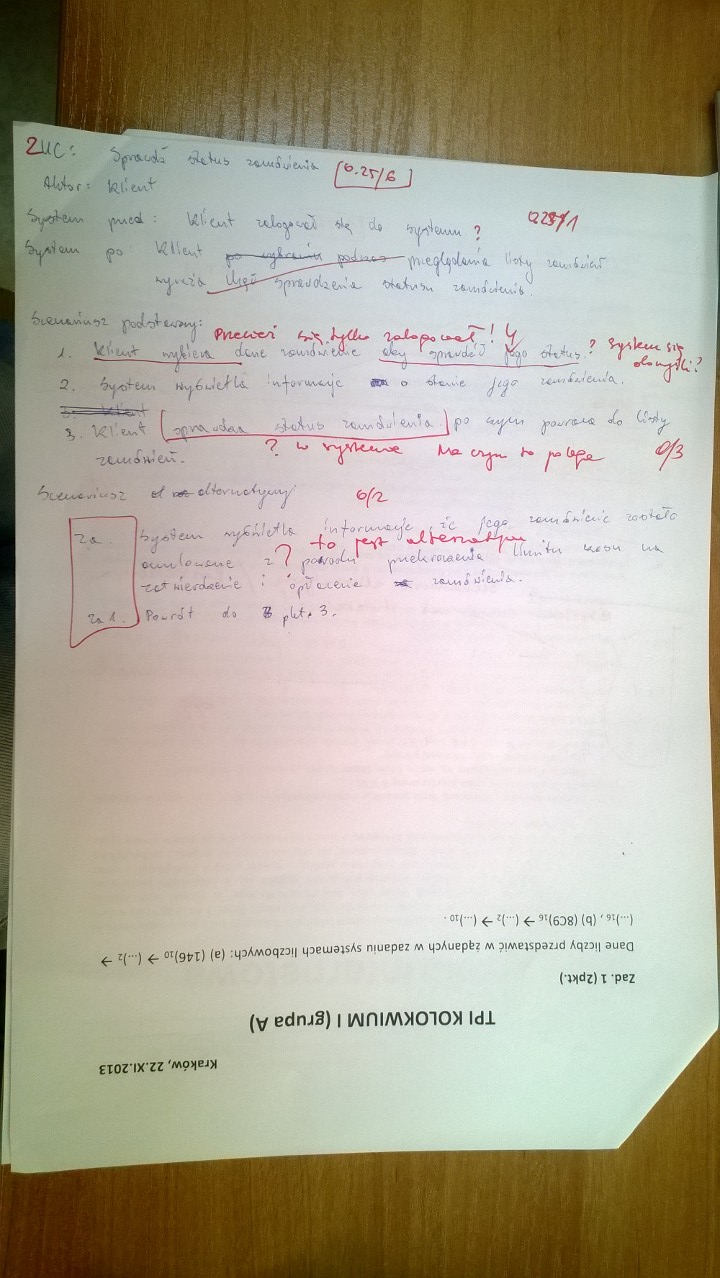 2 UC: Sprawdź status zamówienia [0.25/6]
Aktor: Klient
System przed: Klient zalogował się do systemu ? 0.25/1
System po Klient po wybraniu podczas przeglądania listy zamówień
wyraża chęć sprawdzenia statusu zamówienia.
Scenariusz podstawowy:
Przecież się tylko zalogował!
1. Klient wybiera dane zamówienie aby sprawdzić jego status. ? System się
domyśli?
2. System wyświetla informacje o stanie jego zamówienia.
3. Klient
3. Klient sprawdza status zamówienia po czym powraca do listy
zamówień. ? w systemie Na czym to polega 0/3
Scenariusz alternatywny 0/2
2a. System wyświetla informacje, że jego zamówienie zostało
? to jest alternatywa
anulowane z powodu przekroczenia limitu czasu na
zatwierdzenie i opłacenie zamówienia.
2a1. Powrót do pkt. 3.
Kraków, 22.XI.2013
TPI KOLOKWIUM I (grupa A)
Zad. 1 (2pkt.)
Dane liczby przedstawić w żądanych w zadaniu systemach liczbowych: (a) (146)₁₀ → (...)₂ →
(...)₁₆ , (b) (8C9)₁₆ → (...)₂ → (...)₁₀ .